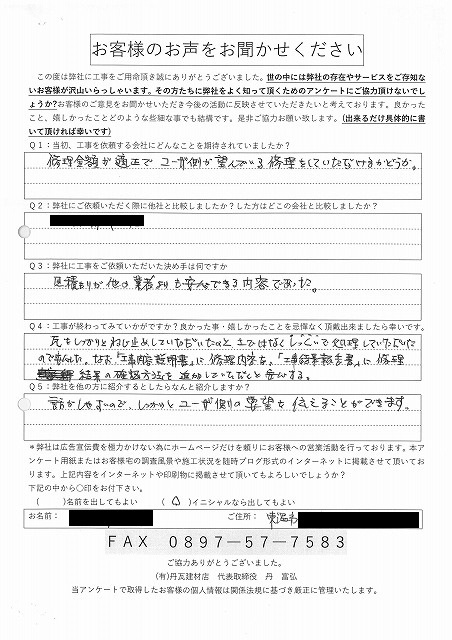 お客様のお声をお聞かせください
この度は弊社に工事をご用命頂き誠にありがとうございました。世の中には弊社の存在やサービスをご存知な
いお客様が沢山いらっしゃいます。その方たちに弊社をよく知って頂くためのアンケートにご協力頂けないでし
ょうか?お客様のご意見をお聞かせいただき今後の活動に反映させていただきたいと考えております。良かった
こと、嬉しかったことどのような些細な事でも結構です。是非ご協力お願い致します。(出来るだけ具体的に書
いて頂ければ幸いです)
Q1:当初、工事を依頼する会社にどんなことを期待されていましたか?
修理金額が適正で ユーザ側が望んでいる修理をしていただけるかどうか。
Q2:弊社にご依頼いただく際に他社と比較しましたか?した方はどこの会社と比較しましたか?
Q3:弊社に工事をご依頼いただいた決め手は何ですか
見積もりが他の業者よりも安心できる内容であった。
Q4:工事が終わってみていかがですか?良かった事・嬉しかったことを忌憚なく頂戴出来ましたら幸いです。
瓦をしっかりとねじ止めしていただいたのと 土ではなくしっくいで処理していただいた
ので安心した。なお「工事内容説明書」に修理内容を、「工事結果報告書」に修理
結果の確認方法を追加していただくと安心する。
Q5:弊社を他の方に紹介するとしたらなんと紹介しますか?
話がしやすいので、しっかりとユーザ側の要望を伝えることができます。
*弊社は広告宣伝費を極力かけない為にホームページだけを頼りにお客様への営業活動を行っております。本ア
ンケート用紙またはお客様宅の調査風景や施工状況を随時ブログ形式のインターネットに掲載させて頂いてお
ります。上記内容をインターネットや印刷物に掲載させて頂いてもよろしいでしょうか?
下記の中から〇印をお付下さい。
( )名前を出してもよい ( 〇 )イニシャルなら出してもよい
お名前: ご住所:
FAX 0897-57-7583
ご協力ありがとうございました。
(有)丹瓦建材店 代表取締役 丹 富弘
当アンケートで取得したお客様の個人情報は関係法規に基づき厳正に管理いたします。